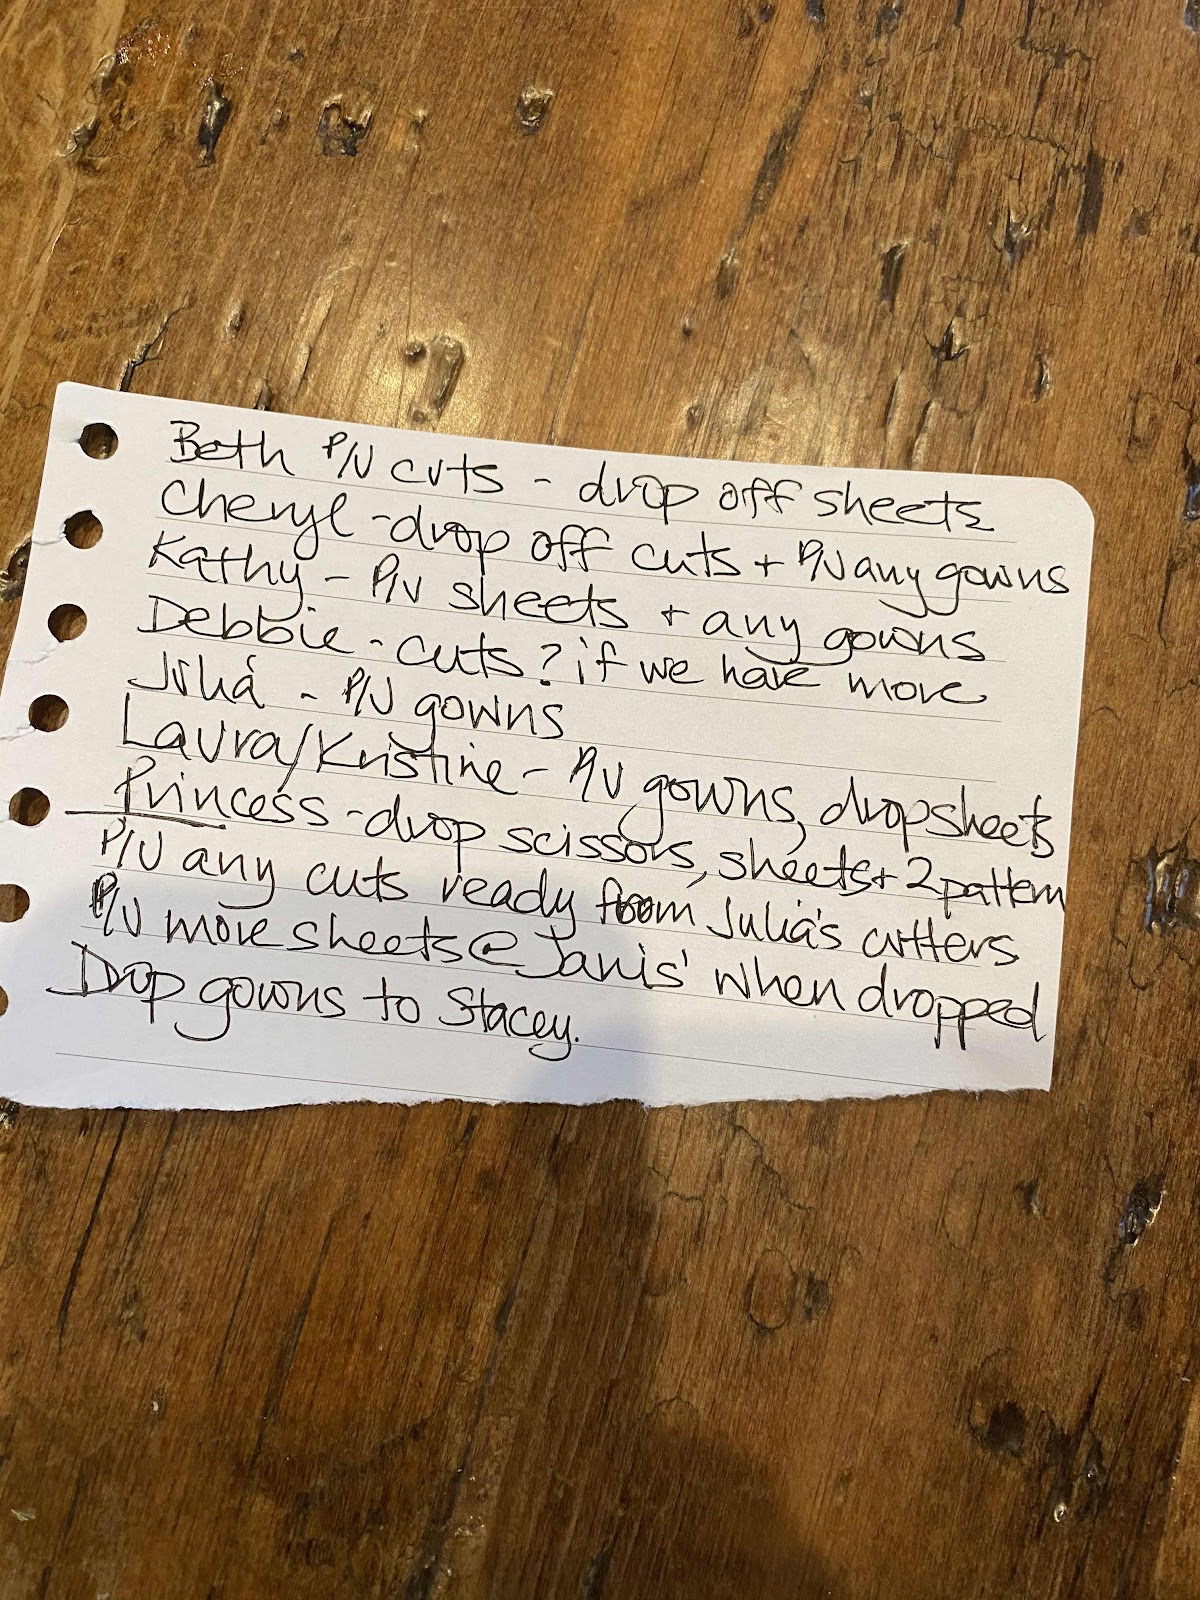 Beth P/U cuts - drop off sheets
Cheryl - drop off cuts + P/U any gowns
Kathy - P/U sheets + any gowns
Debbie - cuts? if we have more
Juliá - P/U gowns
Laura/Kristine - P/U gowns, drop sheets
Princess - drop scissors, sheets + 2 pattern
P/U any cuts ready from Juliá's cutters
P/U more sheets @ Janis' when dropped
Drop gowns to Stacey.